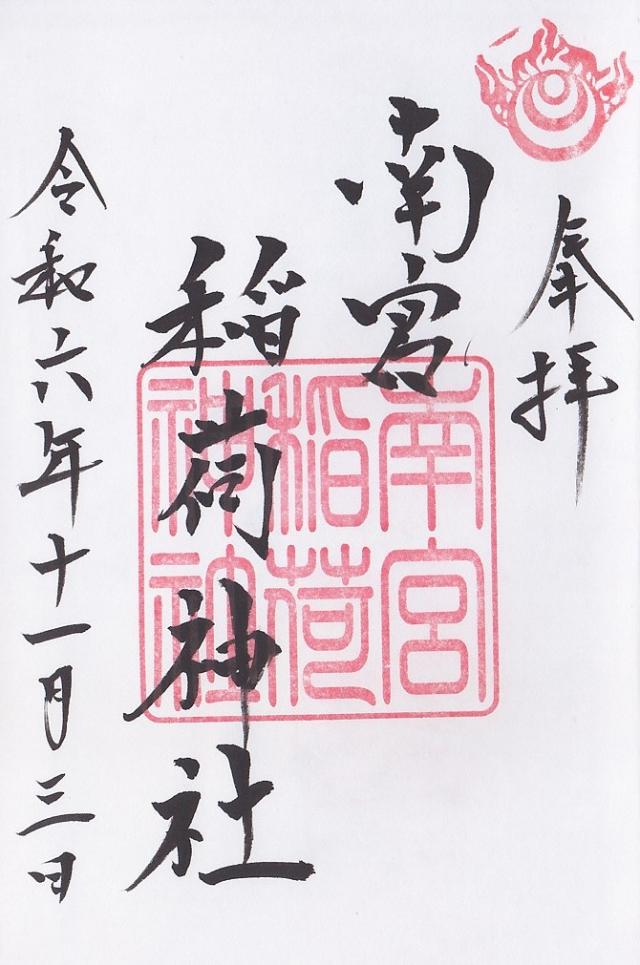 奉拝
南宮
稲荷神社
南宮
稲荷
神社
令和六年十一月三日